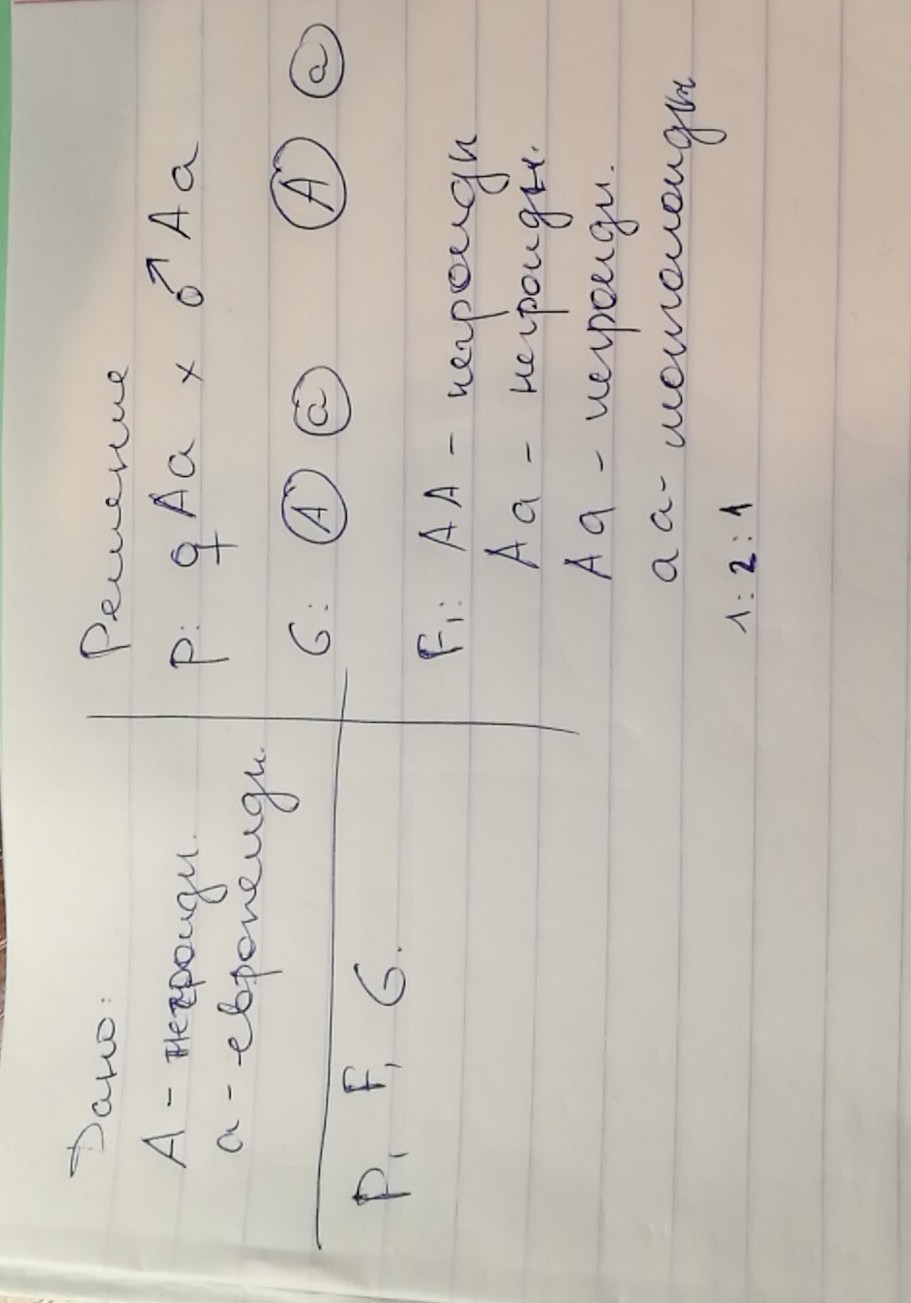 Дано:
А - негроиды.
а - европеиды.
P, F, G.
Решение
P: ♀ Aa x ♂ Aa
G: A a A a
F1: AA - негроиды
Aa - негроиды.
Aa - негроиды.
aa - монголоиды
1:2:1